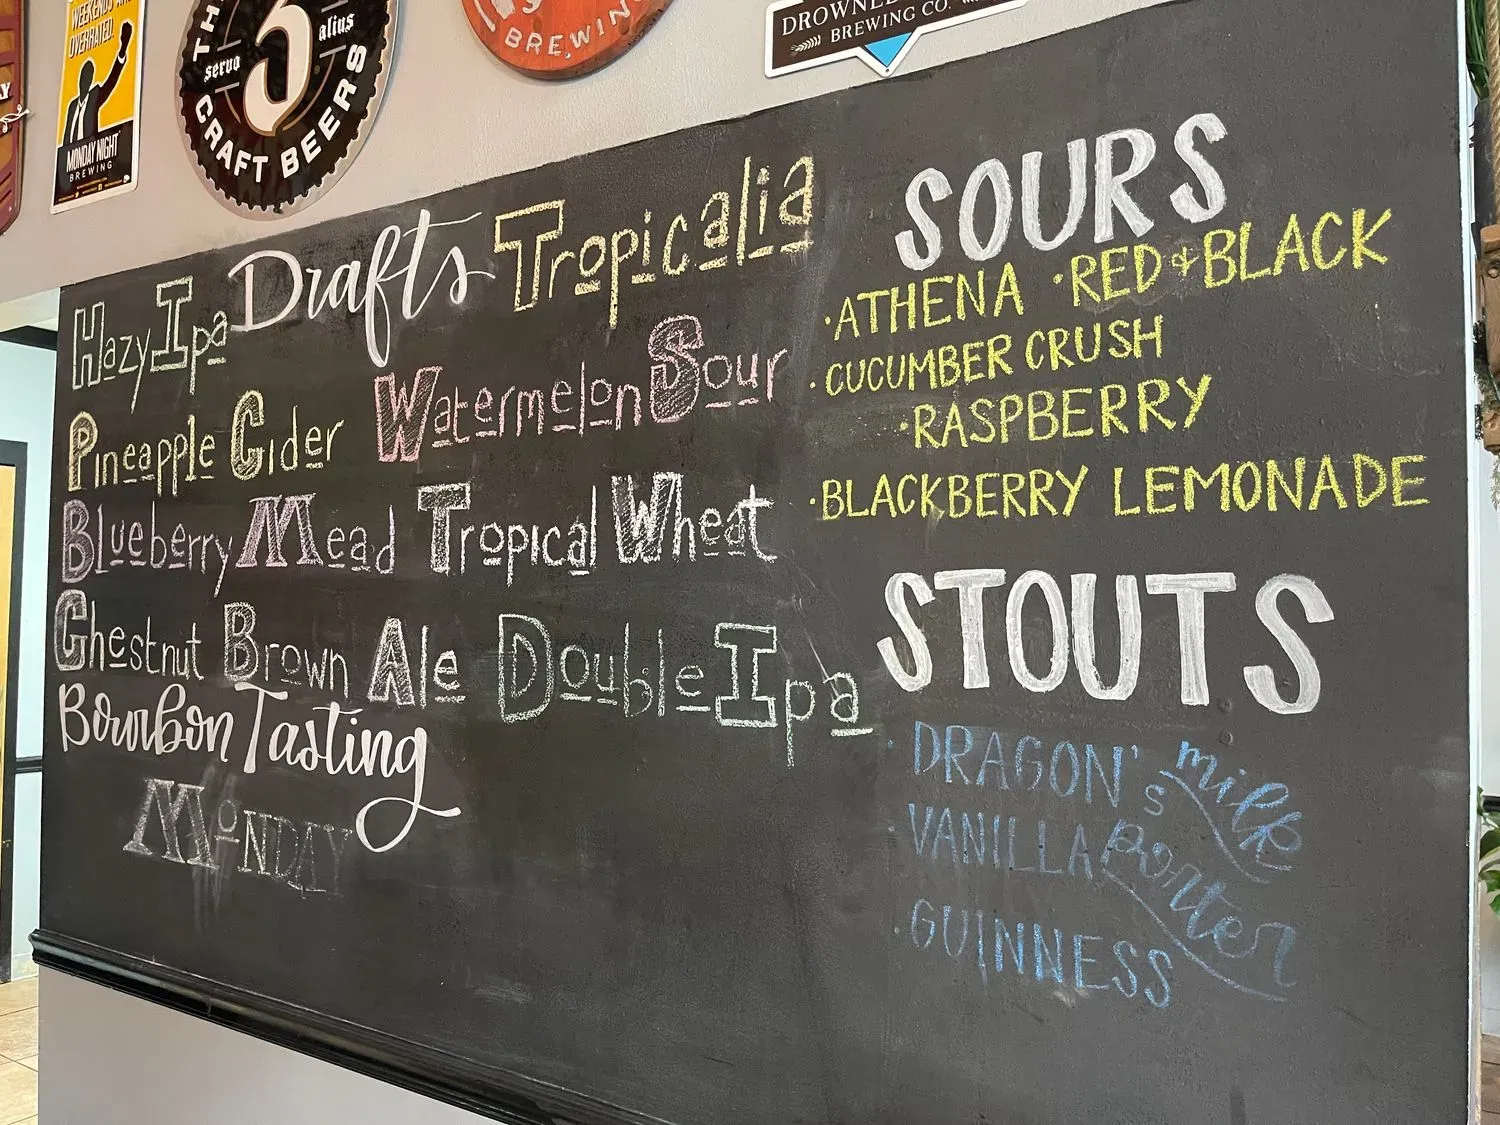 WEEKENDS ARE
OVERRATED.
MONDAY NIGHT
BREWING
servo
3
alius
CRAFT BEERS
BREWING
BREWING CO.
Drafts
Tropicalia
Hazy Ipa
Pineapple Cider
Watermelon Sour
Blueberry Mead
Tropical Wheat
Chestnut Brown Ale
Double Ipa
Bourbon Tasting
MONDAY
SOURS
·ATHENA ·RED & BLACK
·CUCUMBER CRUSH
·RASPBERRY
·BLACKBERRY LEMONADE
STOUTS
·DRAGON'S milk
·VANILLA porter
·GUINNESS